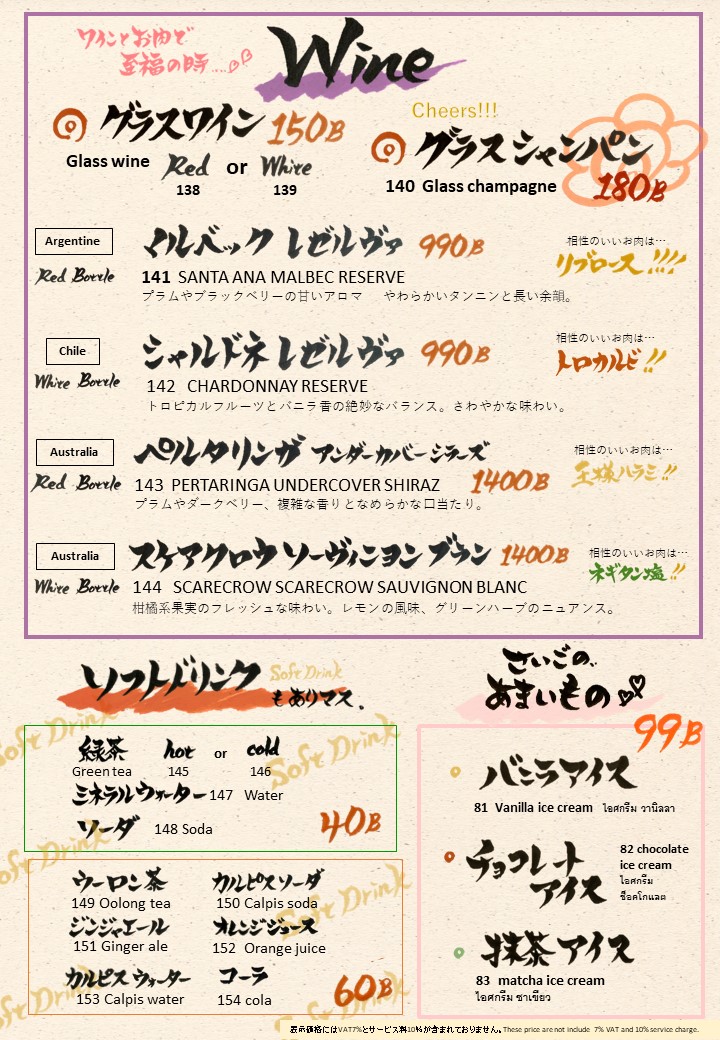 ワインとお肉で
至福の時....
Wine
Cheers!!!
グラスワイン 150B
Glass wine Red or White
138 139
グラスシャンパン
140 Glass champagne 180B
Argentine マルベック レゼルヴァ 990B 相性のいいお肉は…
Red Bottle 141 SANTA ANA MALBEC RESERVE リブロース!!!!
プラムやブラックベリーの甘いアロマ やわらかいタンニンと長い余韻。
Chile シャルドネ レゼルヴァ 990B 相性のいいお肉は…
White Bottle 142 CHARDONNAY RESERVE トロカルビ!!
トロピカルフルーツとバニラ香の絶妙なバランス。さわやかな味わい。
Australia ペルタリンガ アンダーカバーシラーズ 相性のいいお肉は…
Red Bottle 143 PERTARINGA UNDERCOVER SHIRAZ 1400B 王様ハラミ!!
プラムやダークベリー、複雑な香りとなめらかな口当たり。
Australia スケアクロウ ソーヴィニヨン ブラン 1400B 相性のいいお肉は…
White Bottle 144 SCARECROW SCARECROW SAUVIGNON BLANC ネギタン塩!!
柑橘系果実のフレッシュな味わい。レモンの風味、グリーンハーブのニュアンス。
ソフトドリンク Soft Drink
もありマス.
緑茶 hot or cold
Green tea 145 146
ミネラルウォーター 147 Water
ソーダ 148 Soda 40B
ウーロン茶 カルピスソーダ
149 Oolong tea 150 Calpis soda
ジンジャエール オレンジジュース
151 Ginger ale 152 Orange juice
カルピスウォーター コーラ
153 Calpis water 154 cola 60B
Soft Drink
Soft Drink
Soft Drink
Soft Drink
Soft Drink
Soft Drink
さいごの..
あまいもの
99B
バニラアイス
81 Vanilla ice cream ไอศกรีม วานิลลา
チョコレート
アイス
82 chocolate
ice cream
ไอศกรีม
ช็อคโกแลต
抹茶アイス
83 matcha ice cream
ไอศกรีม ชาเขียว
表示価格にはVAT7%とサービス料10%が含まれておりません。These price are not include 7% VAT and 10% service charge.